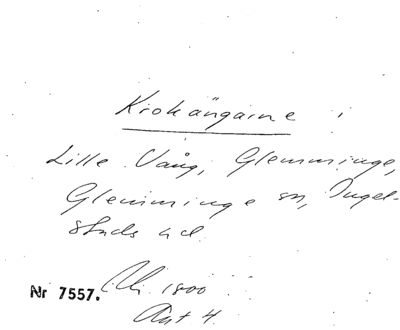 Krokängarne
Lille Vång, Glemminge,
Glemminge sn, Ingel-
stads hd
Nr 7557. 1800
Akt 4